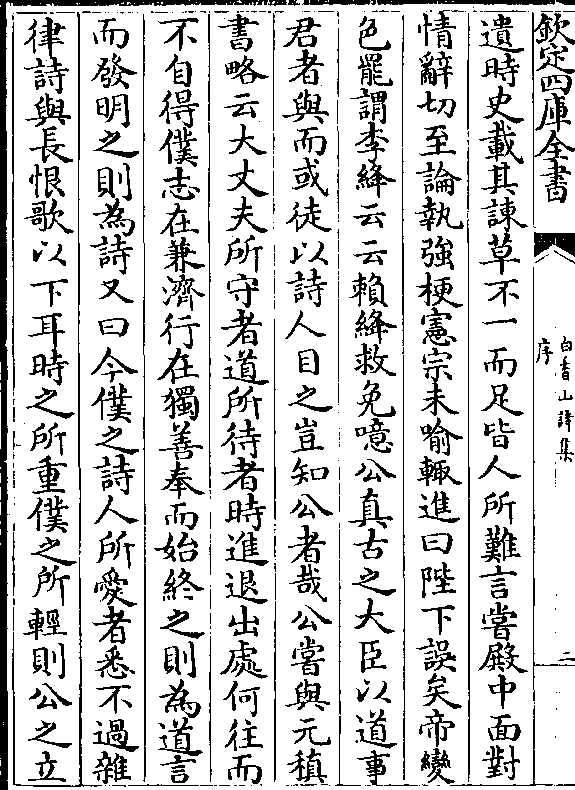 欽定四庫全書
白香山詩集
序
二
遺時史載其諫草不一而足皆人所難言嘗殿中面對
情辭切至論執強梗憲宗未喻輒進曰陛下誤矣帝變
色罷謂李絳云云賴絳救免噫公真古之大臣以道事
君者與而或徒以詩人目之豈知公者哉公嘗與元稹
書略云大丈夫所守者道所待者時進退出處何往而
不自得僕志在兼濟行在獨善奉而始終之則為道言
而發明之則為詩又曰今僕之詩人所愛者悉不過雜
律詩與長恨歌以下耳時之所重僕之所輕則公之立